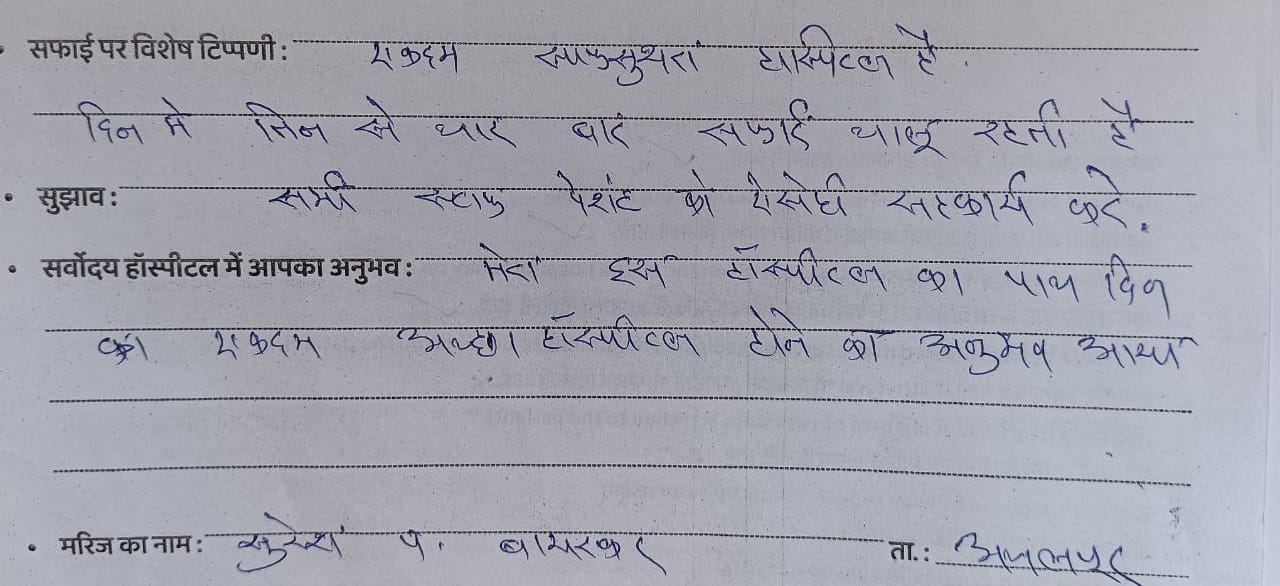 • सफाई पर विशेष टिप्पणी: एकदम साफसुथरा हास्पिटल है.
दिन मे तिन से चार बार सफाई चालू रहती है
• सुझाव: सभी स्टाफ पेशंट को ऐसेही सहकार्य करे.
• सर्वोदय हॉस्पीटल में आपका अनुभव: मेरा इस हॉस्पीटल का पाच दिन
का एकदम अच्छा हॉस्पीटल होने का अनुभव आया
• मरिज का नाम: सुरेश प. ता.: